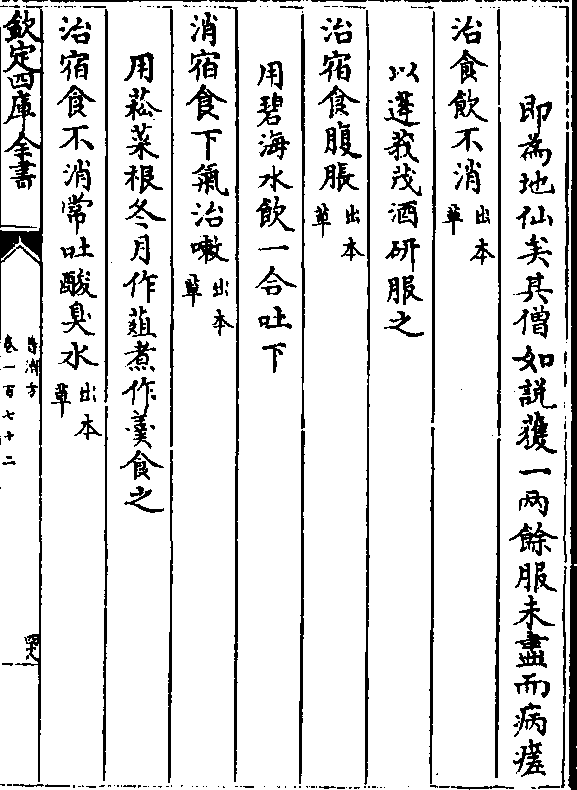 即為地仙矣其僧如說獲一兩餘服未盡而病瘥
治食飲不消出本草
以蓬莪茂酒研服之
治宿食腹脹出本草
用碧海水飲一合吐下
消宿食下氣治嗽出本草
用菘菜根冬月作葅煮作羹食之
治宿食不消常吐酸臭水出本草
欽定四庫全書
普濟方
卷一百七十二